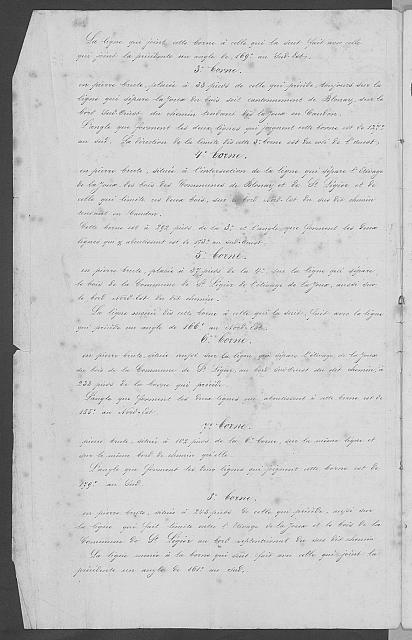 La ligne qui joint cette borne à celle qui la suit fait avec celle
qui joint la précédente un angle de 169° au Sud-Est.
3e borne.
en pierre brute, placée à 33 pieds de celle qui précède toujours sur la
ligne qui sépare la Joux du bois soit cantonnement de Blonay, sur le
bord Sud-Ouest du chemin tendant dès la Joux au
L'angle que forment les deux lignes qui joignent cette borne est de 127°
au sud. La direction de la limite dès cette 3e borne est du côté de l'Ouest.
4e borne.
en pierre brute, située à l'intersection de la ligne qui sépare l'Etivage
de la Joux des bois des Communes de Blonay et de St Légier et de
celle qui limite ces deux bois, sur le bord Nord-Est du sus dit chemin
tendant au
Cette borne est à 392 pieds de la 3e et l'angle que forment les deux
lignes qui y aboutissent est de 173° au Sud-Ouest.
5e borne.
en pierre brute, placée à 37 pieds de la 4e sur la ligne qui sépare
le bois de la Commune de St Légier de l'étivage de la Joux, aussi sur
le bord Nord-Est du dit chemin.
La ligne menée dès cette borne à celle qui la suit, fait avec la ligne
qui précède un angle de 166° au Nord-Est.
6e borne.
en pierre brute, située aussi sur la ligne qui sépare l'étivage de la Joux
du bois de la Commune de St Légier, au bord Sud-Ouest du dit chemin, à
233 pieds de la borne qui précède.
L'angle que forment les deux lignes qui aboutissent à cette borne est de
155° au Nord-Est.
7e borne.
pierre brute, située à 102 pieds de la 6e borne, sur la même ligne et
sur le même bord de chemin qu'elle.
L'angle que forment les deux lignes qui joignent cette borne est de
179° au Sud.
8e borne.
en pierre brute, située à 243 pieds de celle qui précède, aussi sur
la ligne qui fait limite entre l'Etivage de la Joux et le bois de la
Commune de St Légier au bord septentrional du sus dit chemin
La ligne menée à la borne qui suit fait avec celle qui joint la
précédente un angle de 161° au Sud.